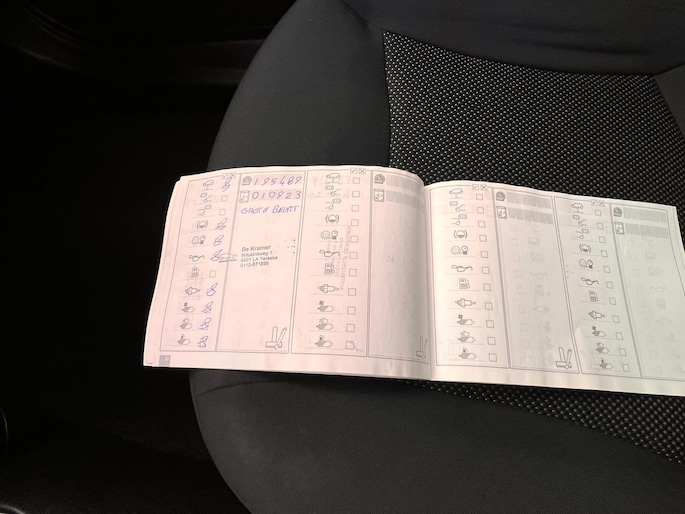 195489
010923
GROTE BEURT
De Kramer
Industrieweg 1
4401 LA Yerseke
0113-571866